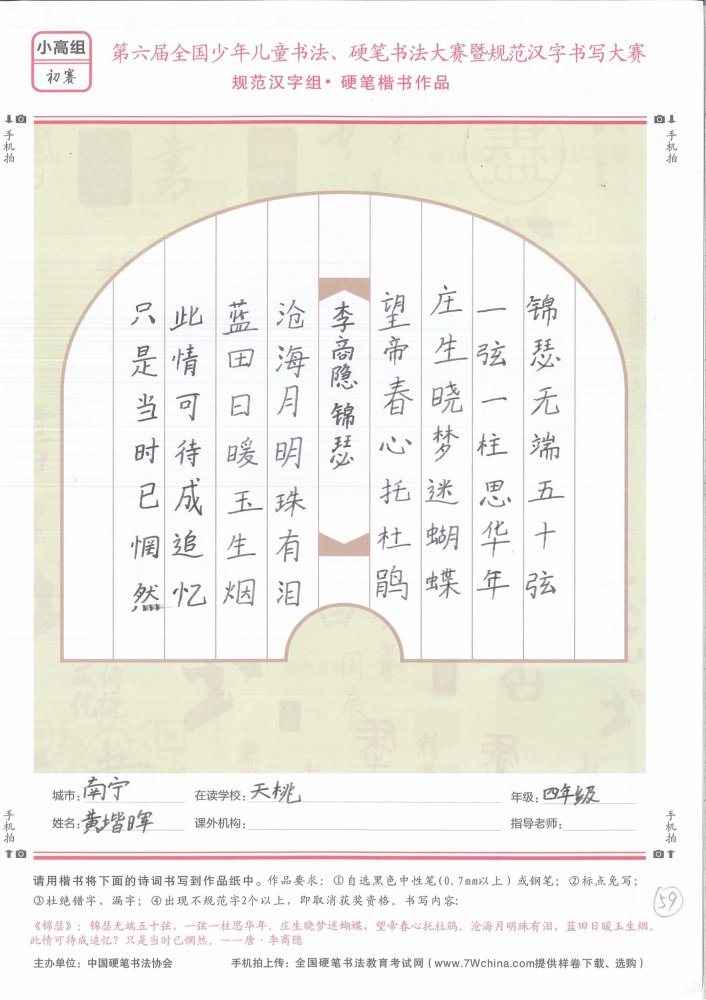 小高组
初赛
第六届全国少年儿童书法、硬笔书法大赛暨规范汉字书写大赛
规范汉字组·硬笔楷书作品
手机拍
手机拍
锦瑟无端五十弦
一弦一柱思华年
庄生晓梦迷蝴蝶
望帝春心托杜鹃
李商隐 锦瑟
沧海月明珠有泪
蓝田日暖玉生烟
此情可待成追忆
只是当时已惘然
城市:南宁 在读学校:天桃 年级:四年级
姓名:黄堦晖 课外机构: 指导老师:
手机拍
手机拍
请用楷书将下面的诗词书写到作品纸中。作品要求:①自选黑色中性笔(0.7mm以上)或钢笔;②标点免写;
③杜绝错字、漏字;④出现不规范字2个以上,即取消获奖资格。书写内容:
59
《锦瑟》:锦瑟无端五十弦,一弦一柱思华年。庄生晓梦迷蝴蝶,望帝春心托杜鹃。沧海月明珠有泪,蓝田日暖玉生烟。
此情可待成追忆?只是当时已惘然。——唐·李商隐
主办单位:中国硬笔书法协会 手机拍上传:全国硬笔书法教育考试网(www.7Wchina.com提供样卷下载、选购)